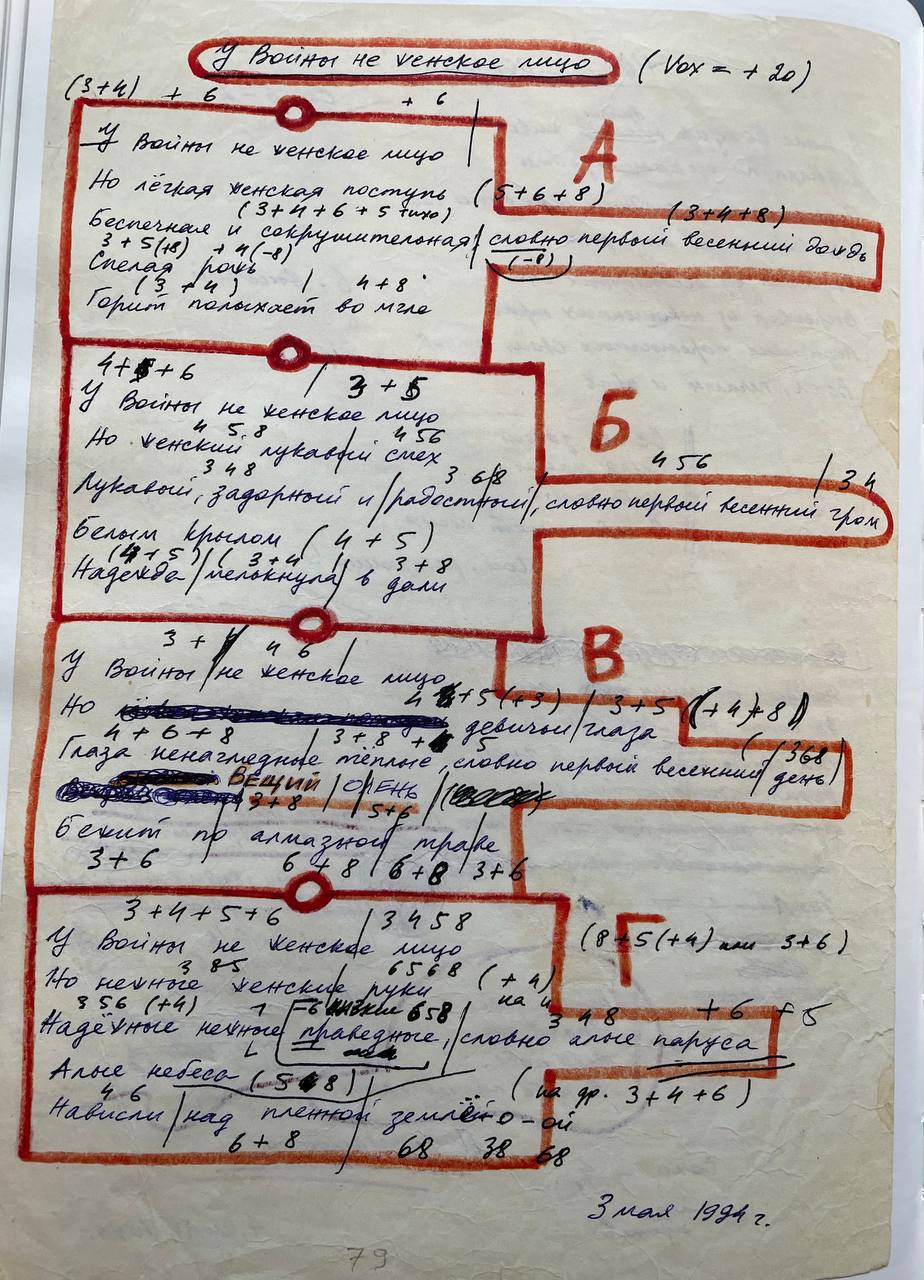 У Войны не женское лицо (Vox = + 20)
(3+4) + 6 + 6
У Войны не женское лицо
А
Но лёгкая женская поступь (5+6+8)
(3+4+6+5+ихо) (3+4+8)
Беспечная и сокрушительная / словно первый весенний дождь
3+5(+8) +4(-8) (-8)
Спелая рожь
(3 + 4) / 4+8
Горит полыхает во мгле
4+5+6 / 3+5
У Войны не женское лицо
Б
4 5 8 4 5 6
Но женский лукавый смех
3 4 8 3 6 8 4 5 6 / 3 4
Лукавый, задорный и / радостный, словно первый весенний гром
Белым крылом (4+5)
(4+5) / (3+4 / 3+8
Надежда / мелькнула / в дали
3 + / 4 6 /
У Войны / не женское лицо
В
4 +5(+3) / 3+5 (+4)+8)
Но девичьи глаза
4+6+8 / 3+8 + 5 (368)
Глаза ненаглядные тёплые, словно первый весенний / день
ВЕЩИЙ / ОЛЕНЬ
3+8 / 5+6
Бежит по алмазной траве
3+6 6+8 / 6+8 / 3+6
3+4+5+6 / 3 4 5 8
У Войны не женское лицо
Г (8+5(+4) или 3+6)
3 8 5 6 5 6 8 (+4)
Но нежные женские руки
на и
3 5 6 (+4) 6 5 8 3 4 8 +6 +5
Надёжные нежные праведные, / словно алые паруса
Алые небеса (5 8)
(на др. 3+4+6)
4 6
Нависли / над пленной землёй-о-ой
6+8 68 38 68
3 мая 1994 г.
79